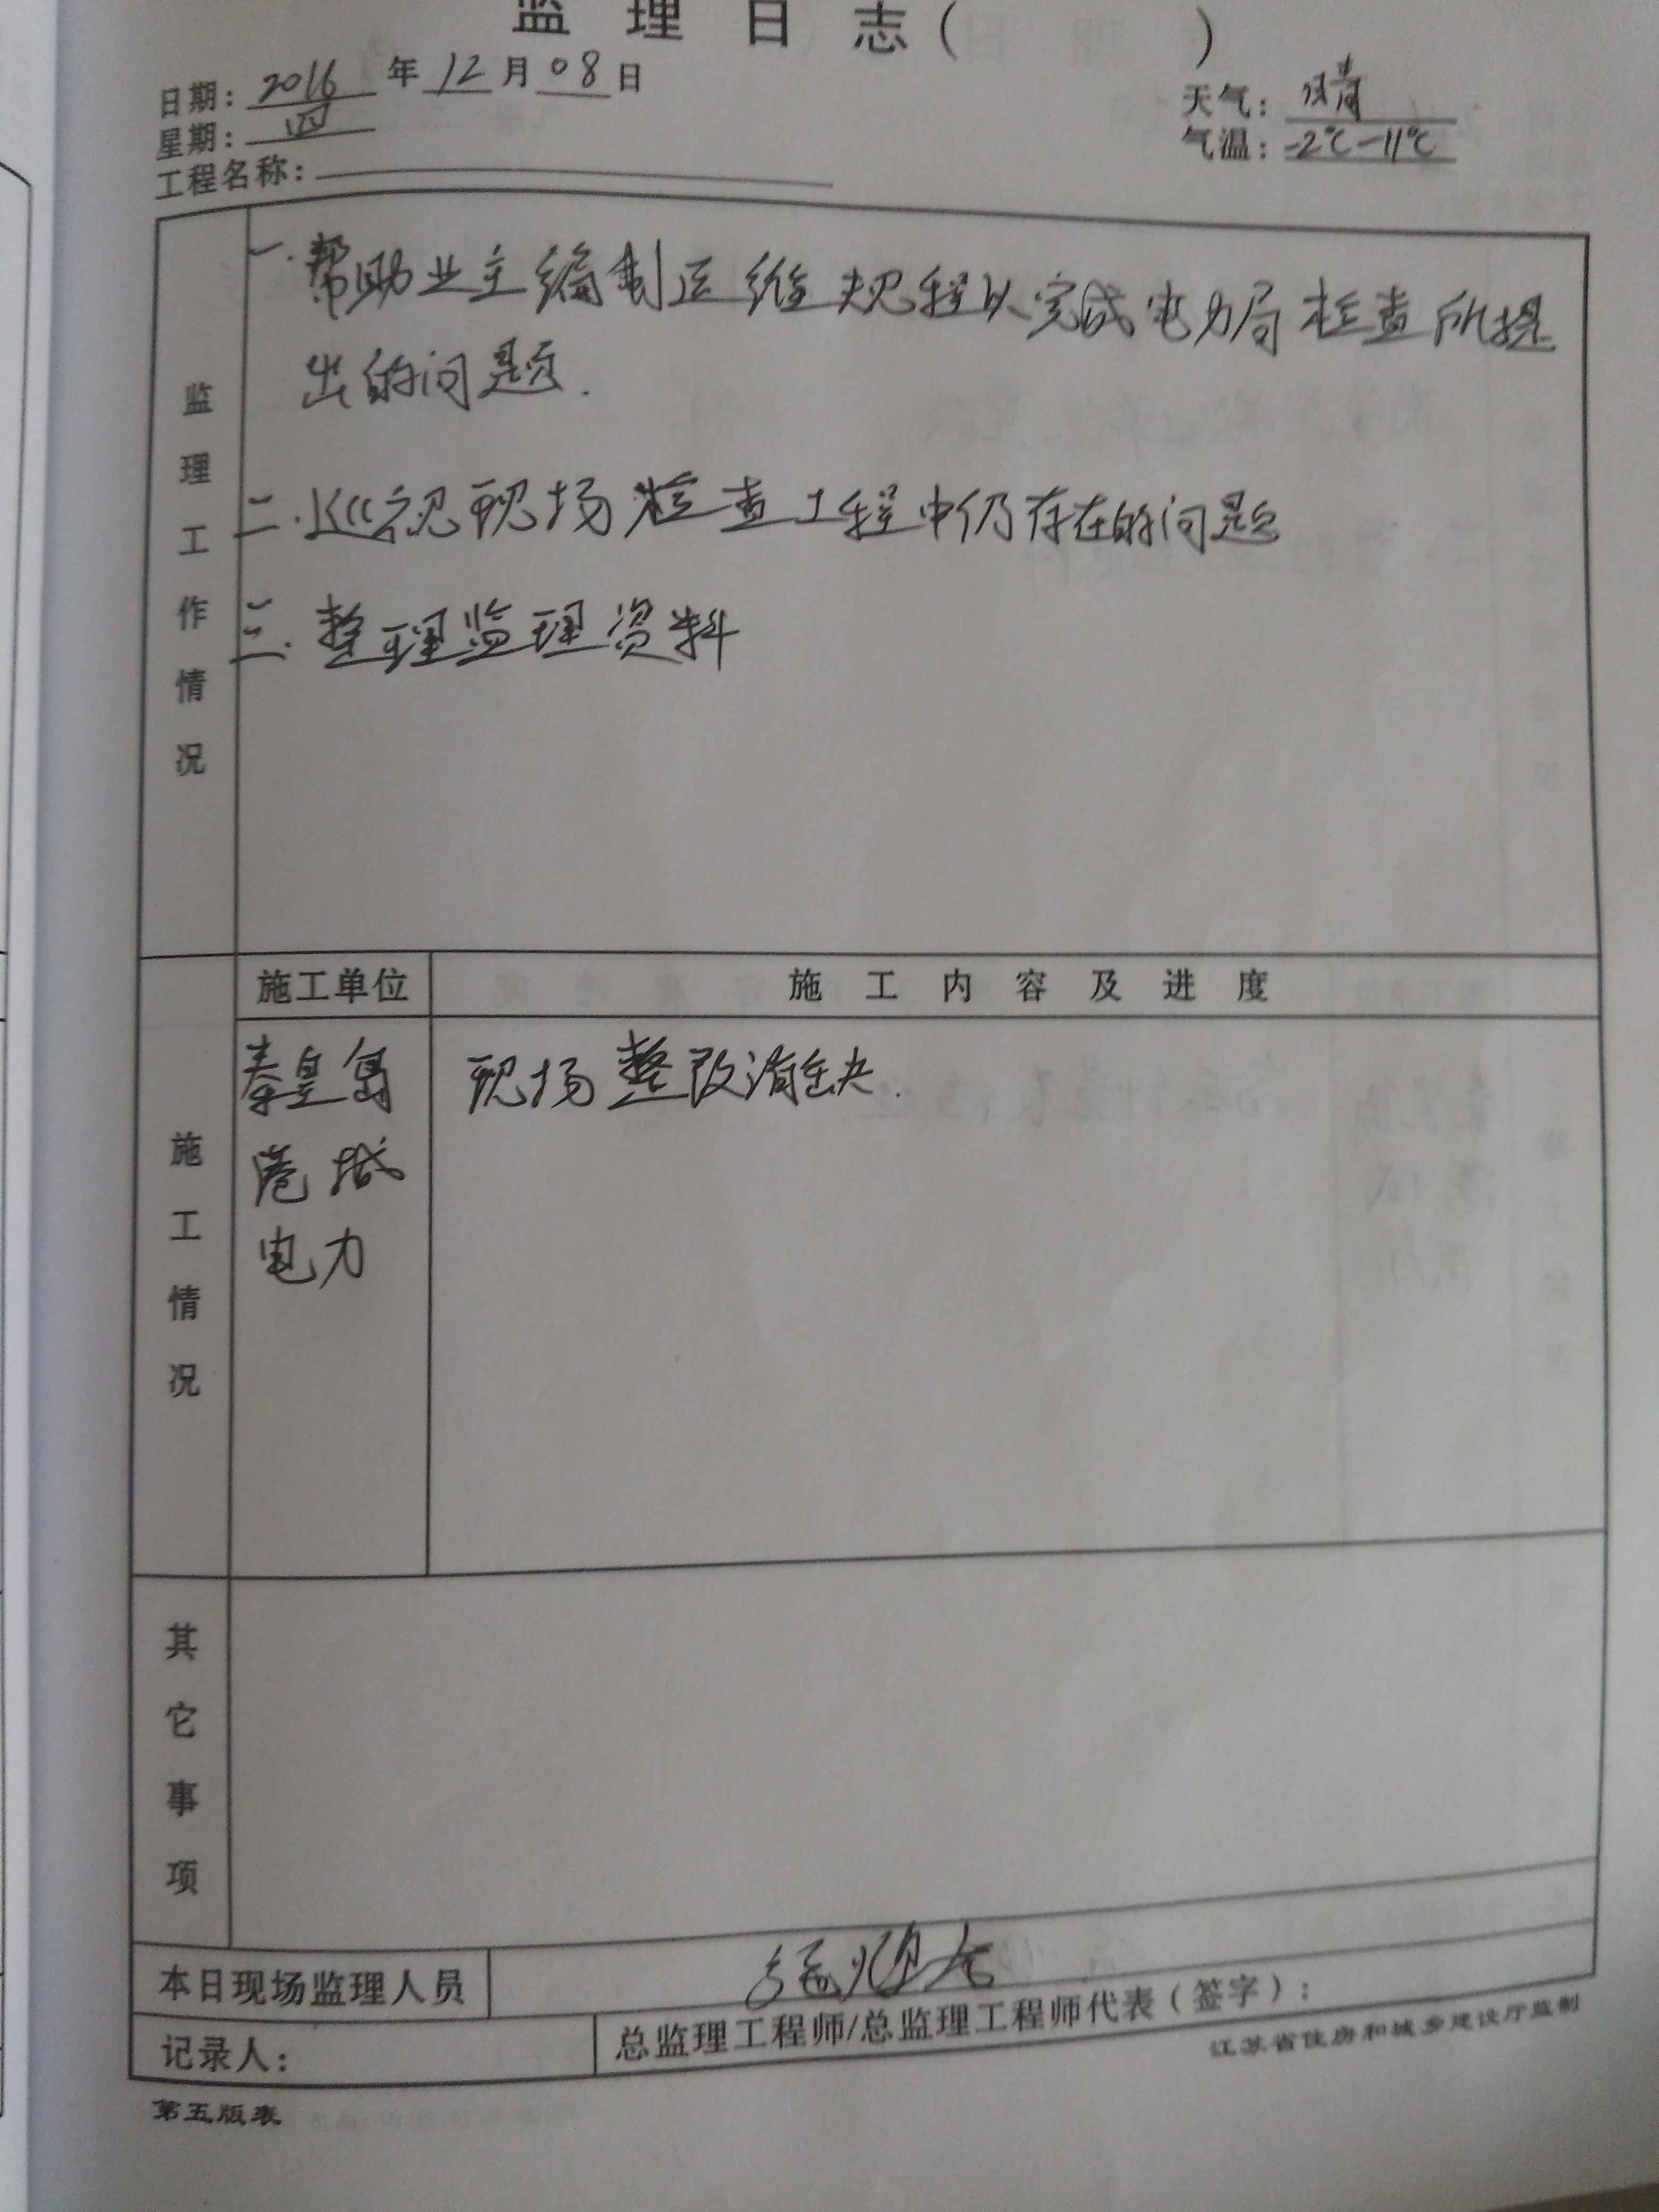 监 理 日 志 (      )
日期: 2016 年 12 月 08 日
天气: 晴
星期: 四
气温: -2℃-11℃
工程名称:
监理工作情况
一. 帮助业主编制运维规程以完成电力局检查所提
出的问题.
二. 巡视现场检查工程中仍存在的问题
三. 整理监理资料
施工单位
施 工 内 容 及 进 度
施工情况
秦皇岛
港城
电力
现场整改消缺.
其它事项
本日现场监理人员
记录人:
总监理工程师/总监理工程师代表(签字):
江苏省住房和城乡建设厅监制
第五版表